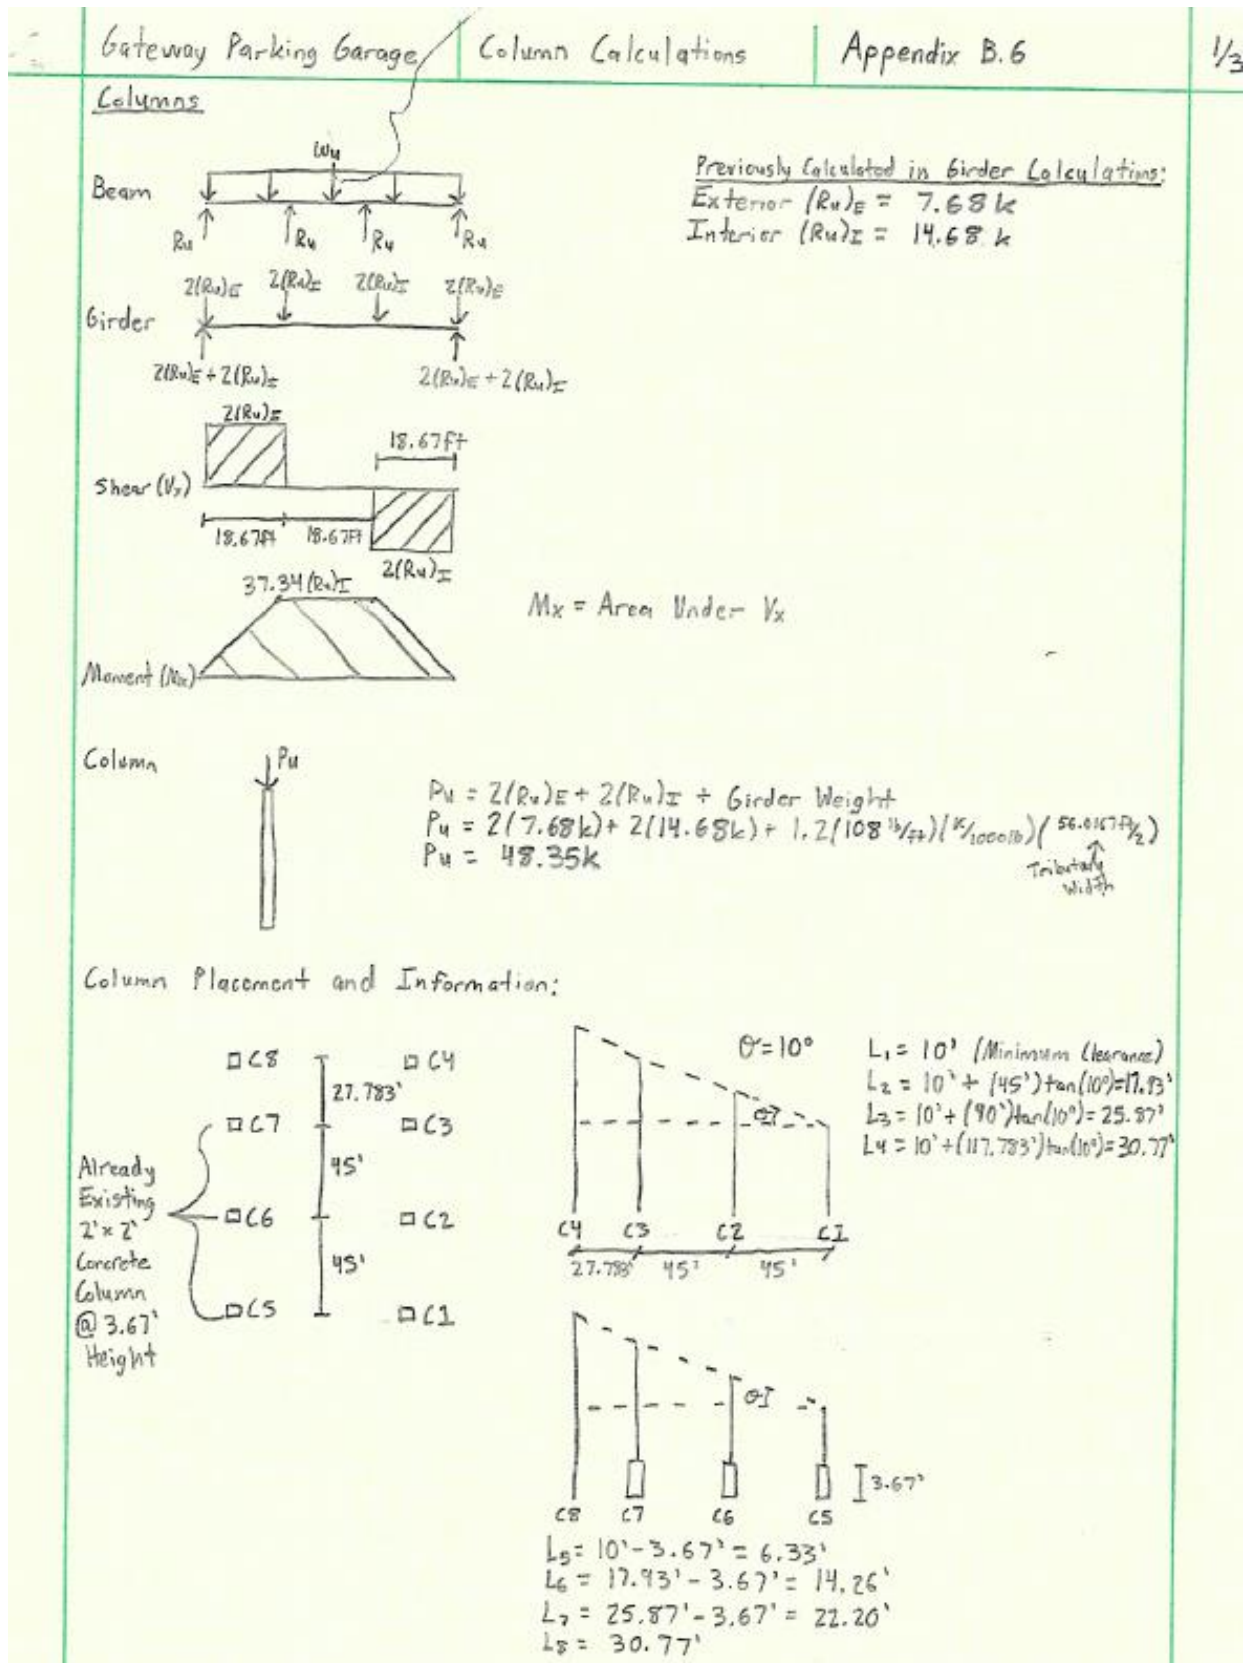 Gateway Parking Garage Column Calculations Appendix B.6 1/3
Columns
Wu
Beam
Ru Ru Ru Ru
Previously Calculated in Girder Calculations:
Exterior (Ru)E = 7.68 k
Interior (Ru)I = 14.68 k
2(Ru)E 2(Ru)I 2(Ru)I 2(Ru)E
Girder
2(Ru)E + 2(Ru)I 2(Ru)E + 2(Ru)I
2(Ru)I
18.67ft
Shear (Vx)
18.67ft 18.67ft
2(Ru)I
37.34(Ru)I
Mx = Area Under Vx
Moment (Mx)
Column
Pu
Pu = 2(Ru)E + 2(Ru)I + Girder Weight
Pu = 2(7.68k) + 2(14.68k) + 1.2(108 lb/ft)(k/1000lb)(56.0167ft/2)
Pu = 48.35k
Tributary
Width
Column Placement and Information:
C8 C4
27.783'
C7 C3
45'
C6 C2
45'
C5 C1
Already
Existing
2' x 2'
Concrete
Column
@ 3.67'
Height
θ = 10°
θ
C4 C3 C2 C1
27.783' 45' 45'
L1 = 10' (Minimum Clearance)
L2 = 10' + (45')tan(10°)=17.93'
L3 = 10' + (90')tan(10°) = 25.87'
L4 = 10' + (117.783')tan(10°) = 30.77'
θ
3.67'
C8 C7 C6 C5
L5 = 10' - 3.67' = 6.33'
L6 = 17.93' - 3.67' = 14.26'
L7 = 25.87' - 3.67' = 22.20'
L8 = 30.77'